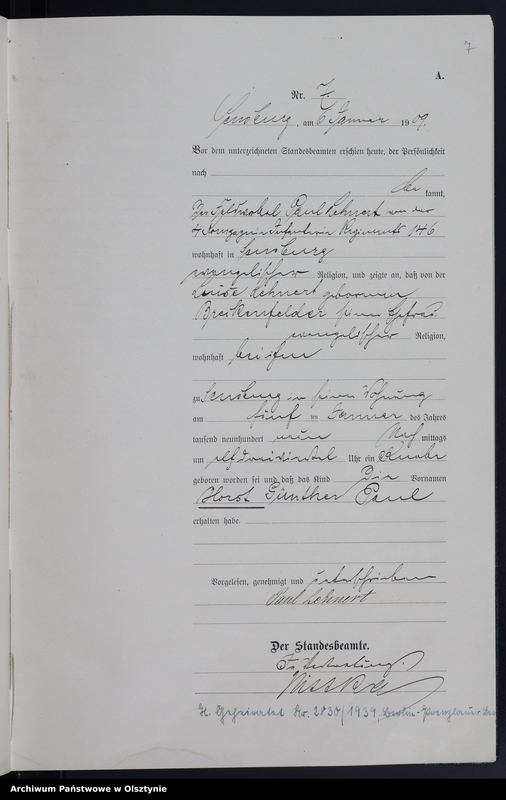 7
A.
Nr. 7.
Sensburg, am 6 Januar 1909.
Vor dem unterzeichneten Standesbeamten erschien heute, der Persönlichkeit
nach
be kannt,
Der Feldwebel Paul Lehnert von der
4 Kompagnie Infanterie Regiments 146
wohnhaft in Sensburg
evangelischer Religion, und zeigte an, daß von der
Luise Lehnert geborenen
Breikenfelder seiner Ehefrau
evangelischer Religion,
wohnhaft bei ihm
zu Sensburg in seiner Wohnung
am fünf ten Januar des Jahres
tausend neunhundert neun Nach mittags
um elf dreiviertel Uhr ein Knabe
geboren worden sei und daß das Kind Die Vornamen
Horst Günther Paul
erhalten habe.
Vorgelesen, genehmigt und unterschrieben
Paul Lehnert
Der Standesbeamte.
In Vertretung.
H. Geheiratet Nr. 2030/1939, Berlin-Prenzlauer
Archiwum Państwowe w Olsztynie